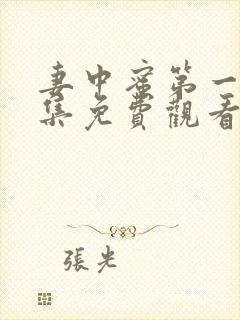 妻中蜜第一
集免費觀看
張光